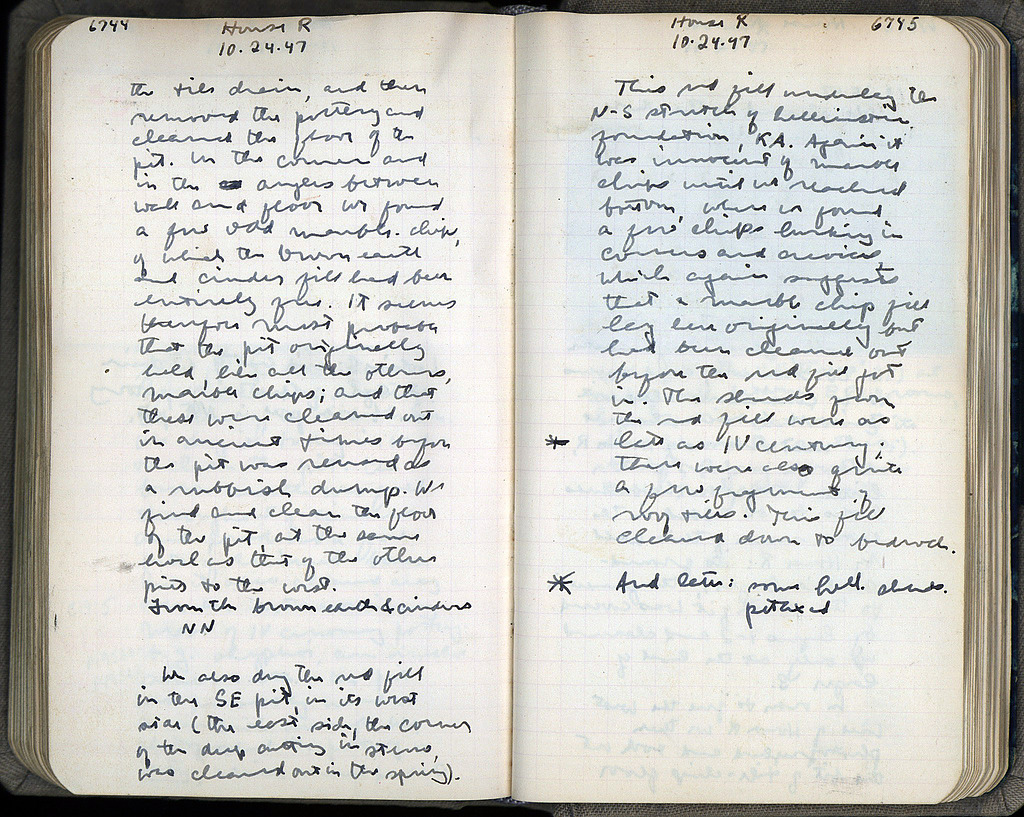 6744
House R
10.24.47
the tile drain, and then
removed the pottery and
cleaned the floor of the
pit. In the corners and
in the angles between
wall and floor we found
a few odd marble chips,
of which the brown earth
and cinder fill had been
entirely free. It seems
therefore most probable
that the pit originally
held, like all the others,
marble chips; and that
these were cleaned out
in ancient times before
the pit was reused as
a rubbish dump. We
find and clean the floor
of the pit, at the same
level as that of the other
pits to the west.
From the brown earth & cinders
NN
We also dug the red fill
in the SE pit, in its west
side (the east side, the corner
of the deep cutting in stereo,
was cleaned out in the spring).
House R
6745
10.24.47
This red fill underlay the
N-S stretch of hellenistic
foundation, KA. Again it
was innocent of marble
chips until we reached
bottom, where we found
a few chips lurking in
corners and crevices
which again suggests
that a marble chip fill
lay here originally but
had been cleaned out
before the red fill got
in. The sherds from
the red fill were as
* late as IV century:
there were also quite
a few fragments of
roof tiles. This fill
cleared down to bedrock.
* And later: some hell. sherds.